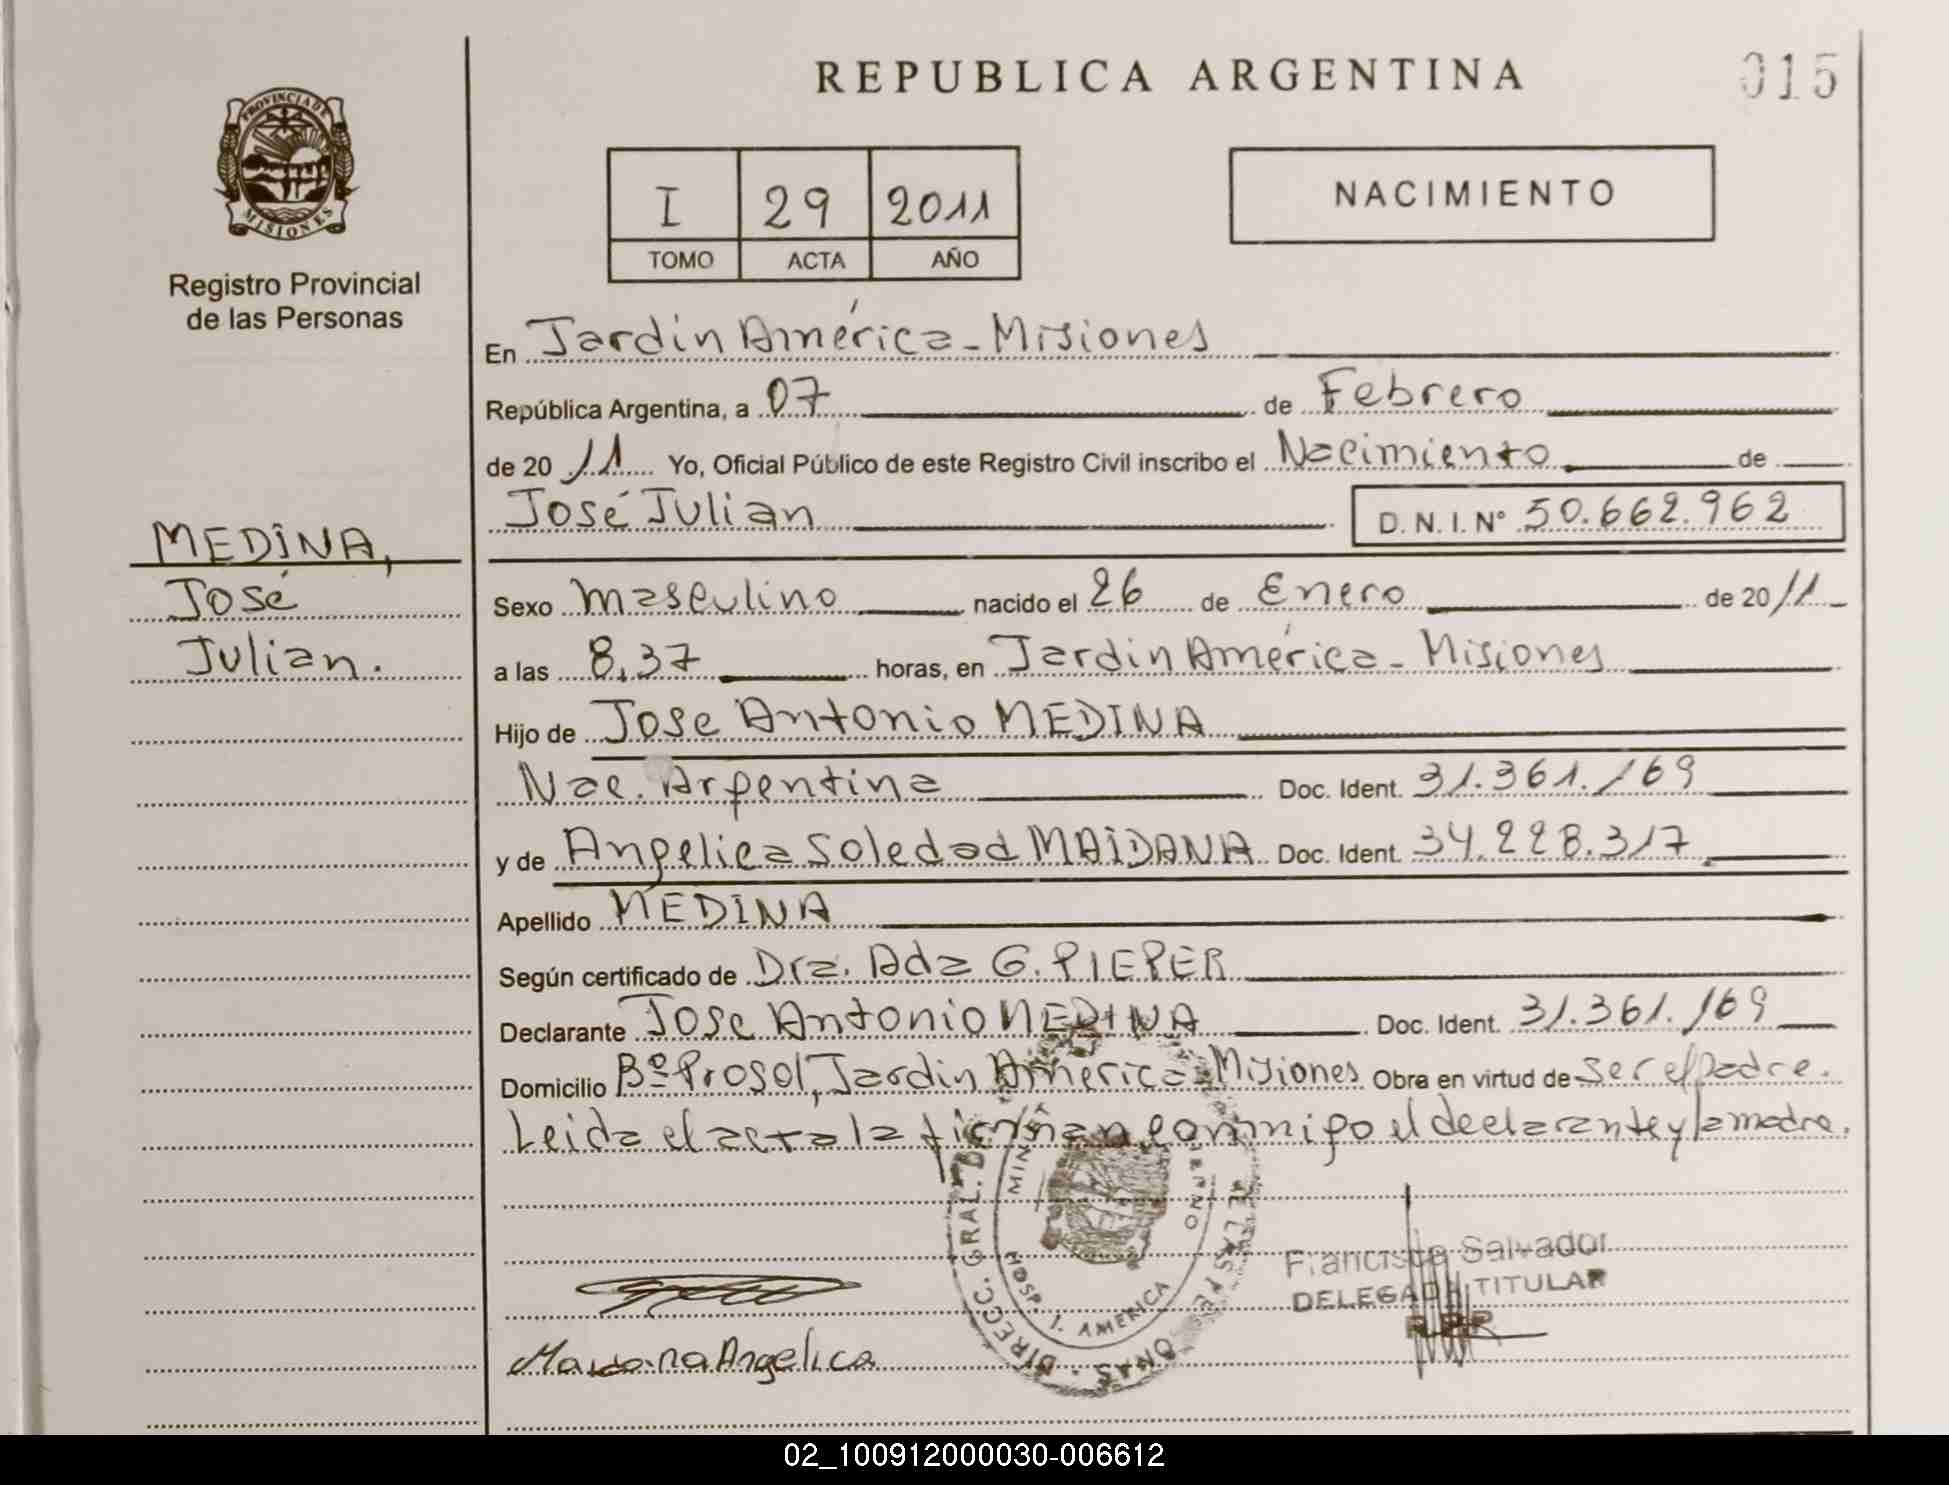 REPUBLICA ARGENTINA
015
PROVINCIA DE
MISIONES
Registro Provincial
de las Personas
I 29 2011
TOMO ACTA AÑO
NACIMIENTO
En Jardin América - Misiones
República Argentina, a 07 de Febrero
de 2011 Yo, Oficial Público de este Registro Civil inscribo el Nacimiento de
José Julian D.N.I.Nº 50.662.962
MEDINA,
José
Julian.
Sexo Masculino nacido el 26 de Enero de 2011
a las 8,37 horas, en Jardin América - Misiones
Hijo de Jose Antonio MEDINA
Nac. Argentina Doc. Ident. 31.361.169
y de Angelica Soledad MAIDANA Doc. Ident. 34.228.317
Apellido MEDINA
Según certificado de Dra. Ada G. PIEPER
Declarante Jose Antonio MEDINA Doc. Ident. 31.361.169
Domicilio Bº Prosol, Jardin America - Misiones Obra en virtud de ser el padre.
Leida el acta la firman conmigo el declarante y la madre.
DIRECC. GRAL. DE LAS PERSONAS
HOSP. J. AMERICA
Francisco Salvador
DELEGADO TITULAR
R.P.P.
Maidana Angelica
02_100912000030-006612